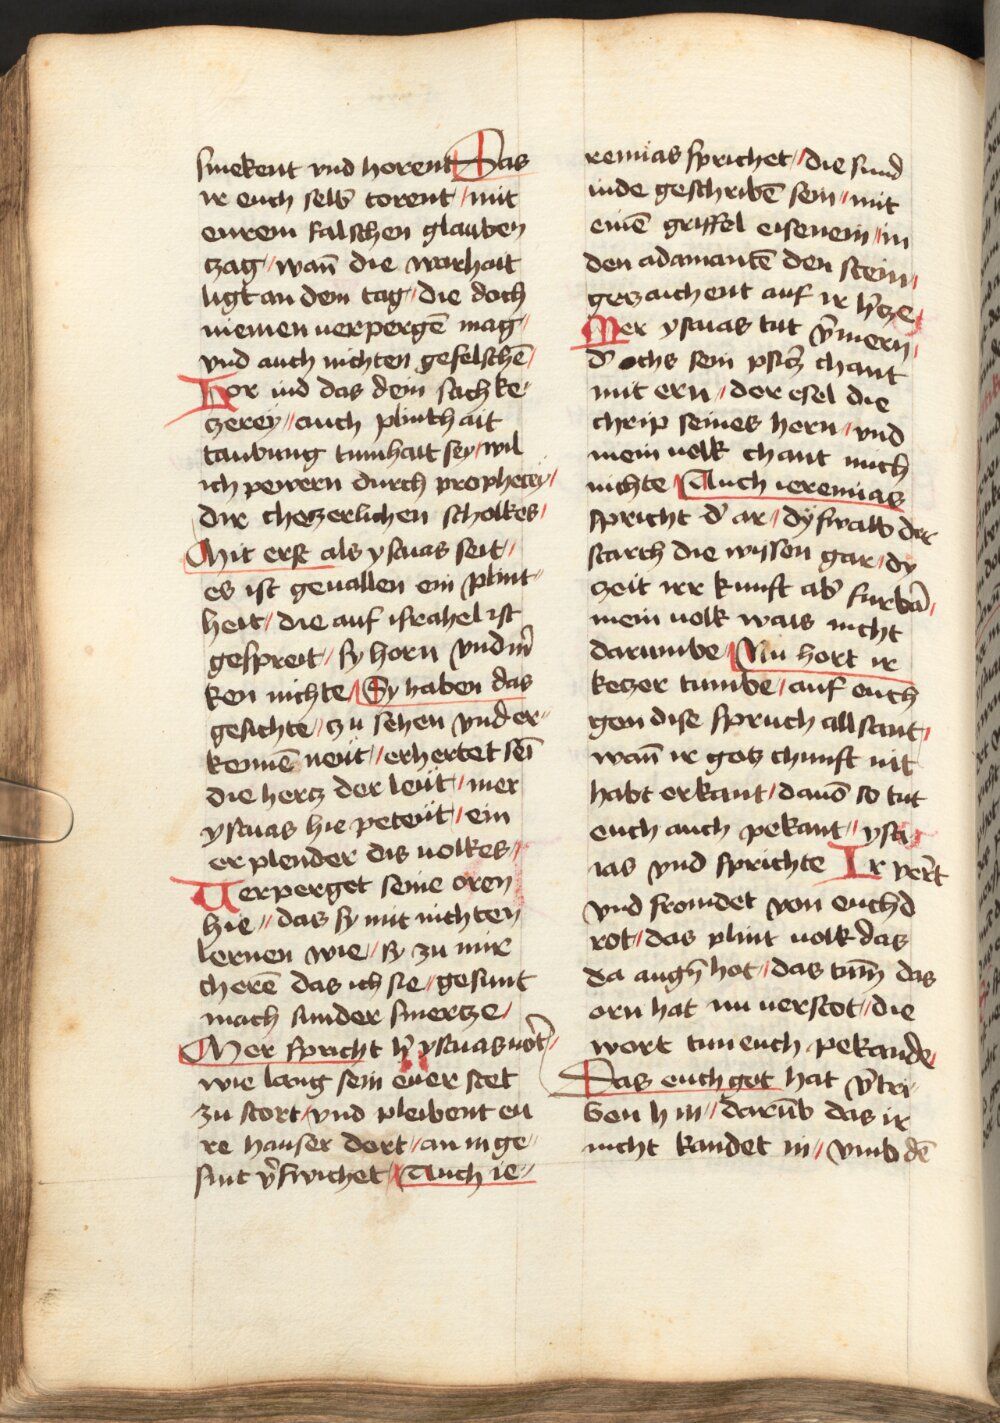 smekent vnd horent Das
ir euch selb torent / mit
eurem falschen glauben
zag // wañ die warhait
ligt an dem tag / die doch
niemen verpergē mag /
vnd auch nichten gefelschē /
Hor iud das dem sach ke-
zerey // auch plinthait
taubung tumhait sey / wil
ich pewern durch prophecey /
dir chezerlichen scholkes /
Mit erst als ysaias seit /
es ist geuallen ein plint-
heit / die auf israhel ist
gespreit / sy horn vnd m̄
ken nichte / Sy haben das
gesichte / zu sehen vnd er-
kennē neüt // erhertet sei
die hertz der leüt / mer
ysaias hie peteüt / ein
erplender dis volkes /
Verperget seine oren
hie // das sy mit nichten
lernen wie / sy zu mir
cherē das ich sie / gesunt
mach sunder smertze /
Mer spricht h̄ ysaias vōr /
wie lang sein euer stet
zu stort / vnd pleibent eu
re hauser dort / an in ge-
sint v̄swichet / Auch ie-
remias sprichet / die sund
iude geschribē sein // mit
einē griffel eisenein / in
den adamantē den stein /
gezaichent auf ir h̄tze
Mer ysaias tut v̄mern /
d̄ ochs sein psitz̄ chant
mit ern / der esel die
chrip seines hern / vnd
mein volk chant mich
nichte / Auch ieremias
spricht d̄ ar / dy swalb der
starch die wissen gar / dy
zeit irr kunft ab̄ furbā /
mein volk wais nicht
darumbe / Nu hort ir
kezer tumbe / auf euch
gen dise spruch allsant /
wañ ir gotz chunft nit
habt erkant / dauō so tut
euch auch pekant // ysa
ias vnd sprichte Ir vert
vnd fromdet von euch d̄
rot / das plint volk das
da augn̄ hot / das tum̄ das
orn hat nu verstot / die
wort tun euch pekande
Das euch got hat v̄tri-
ben hin // darūb das ir
nicht kandet in // vmb dē